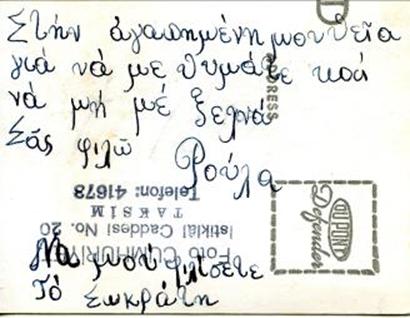 Στήν ἀγαπημένη μου θεῖα
γιά νά με θυμάτε καί
νά μή μέ ξελνά
Σάς φιλῶ
Ρούλα
Νά μού φιλίσετε
Τό Σωκράτη
Foto CUMHURİYET
Istiklâl Caddesi No. 20
TAKSİM
Telefon: 41678
ADDRESS
DU PONT
Defender